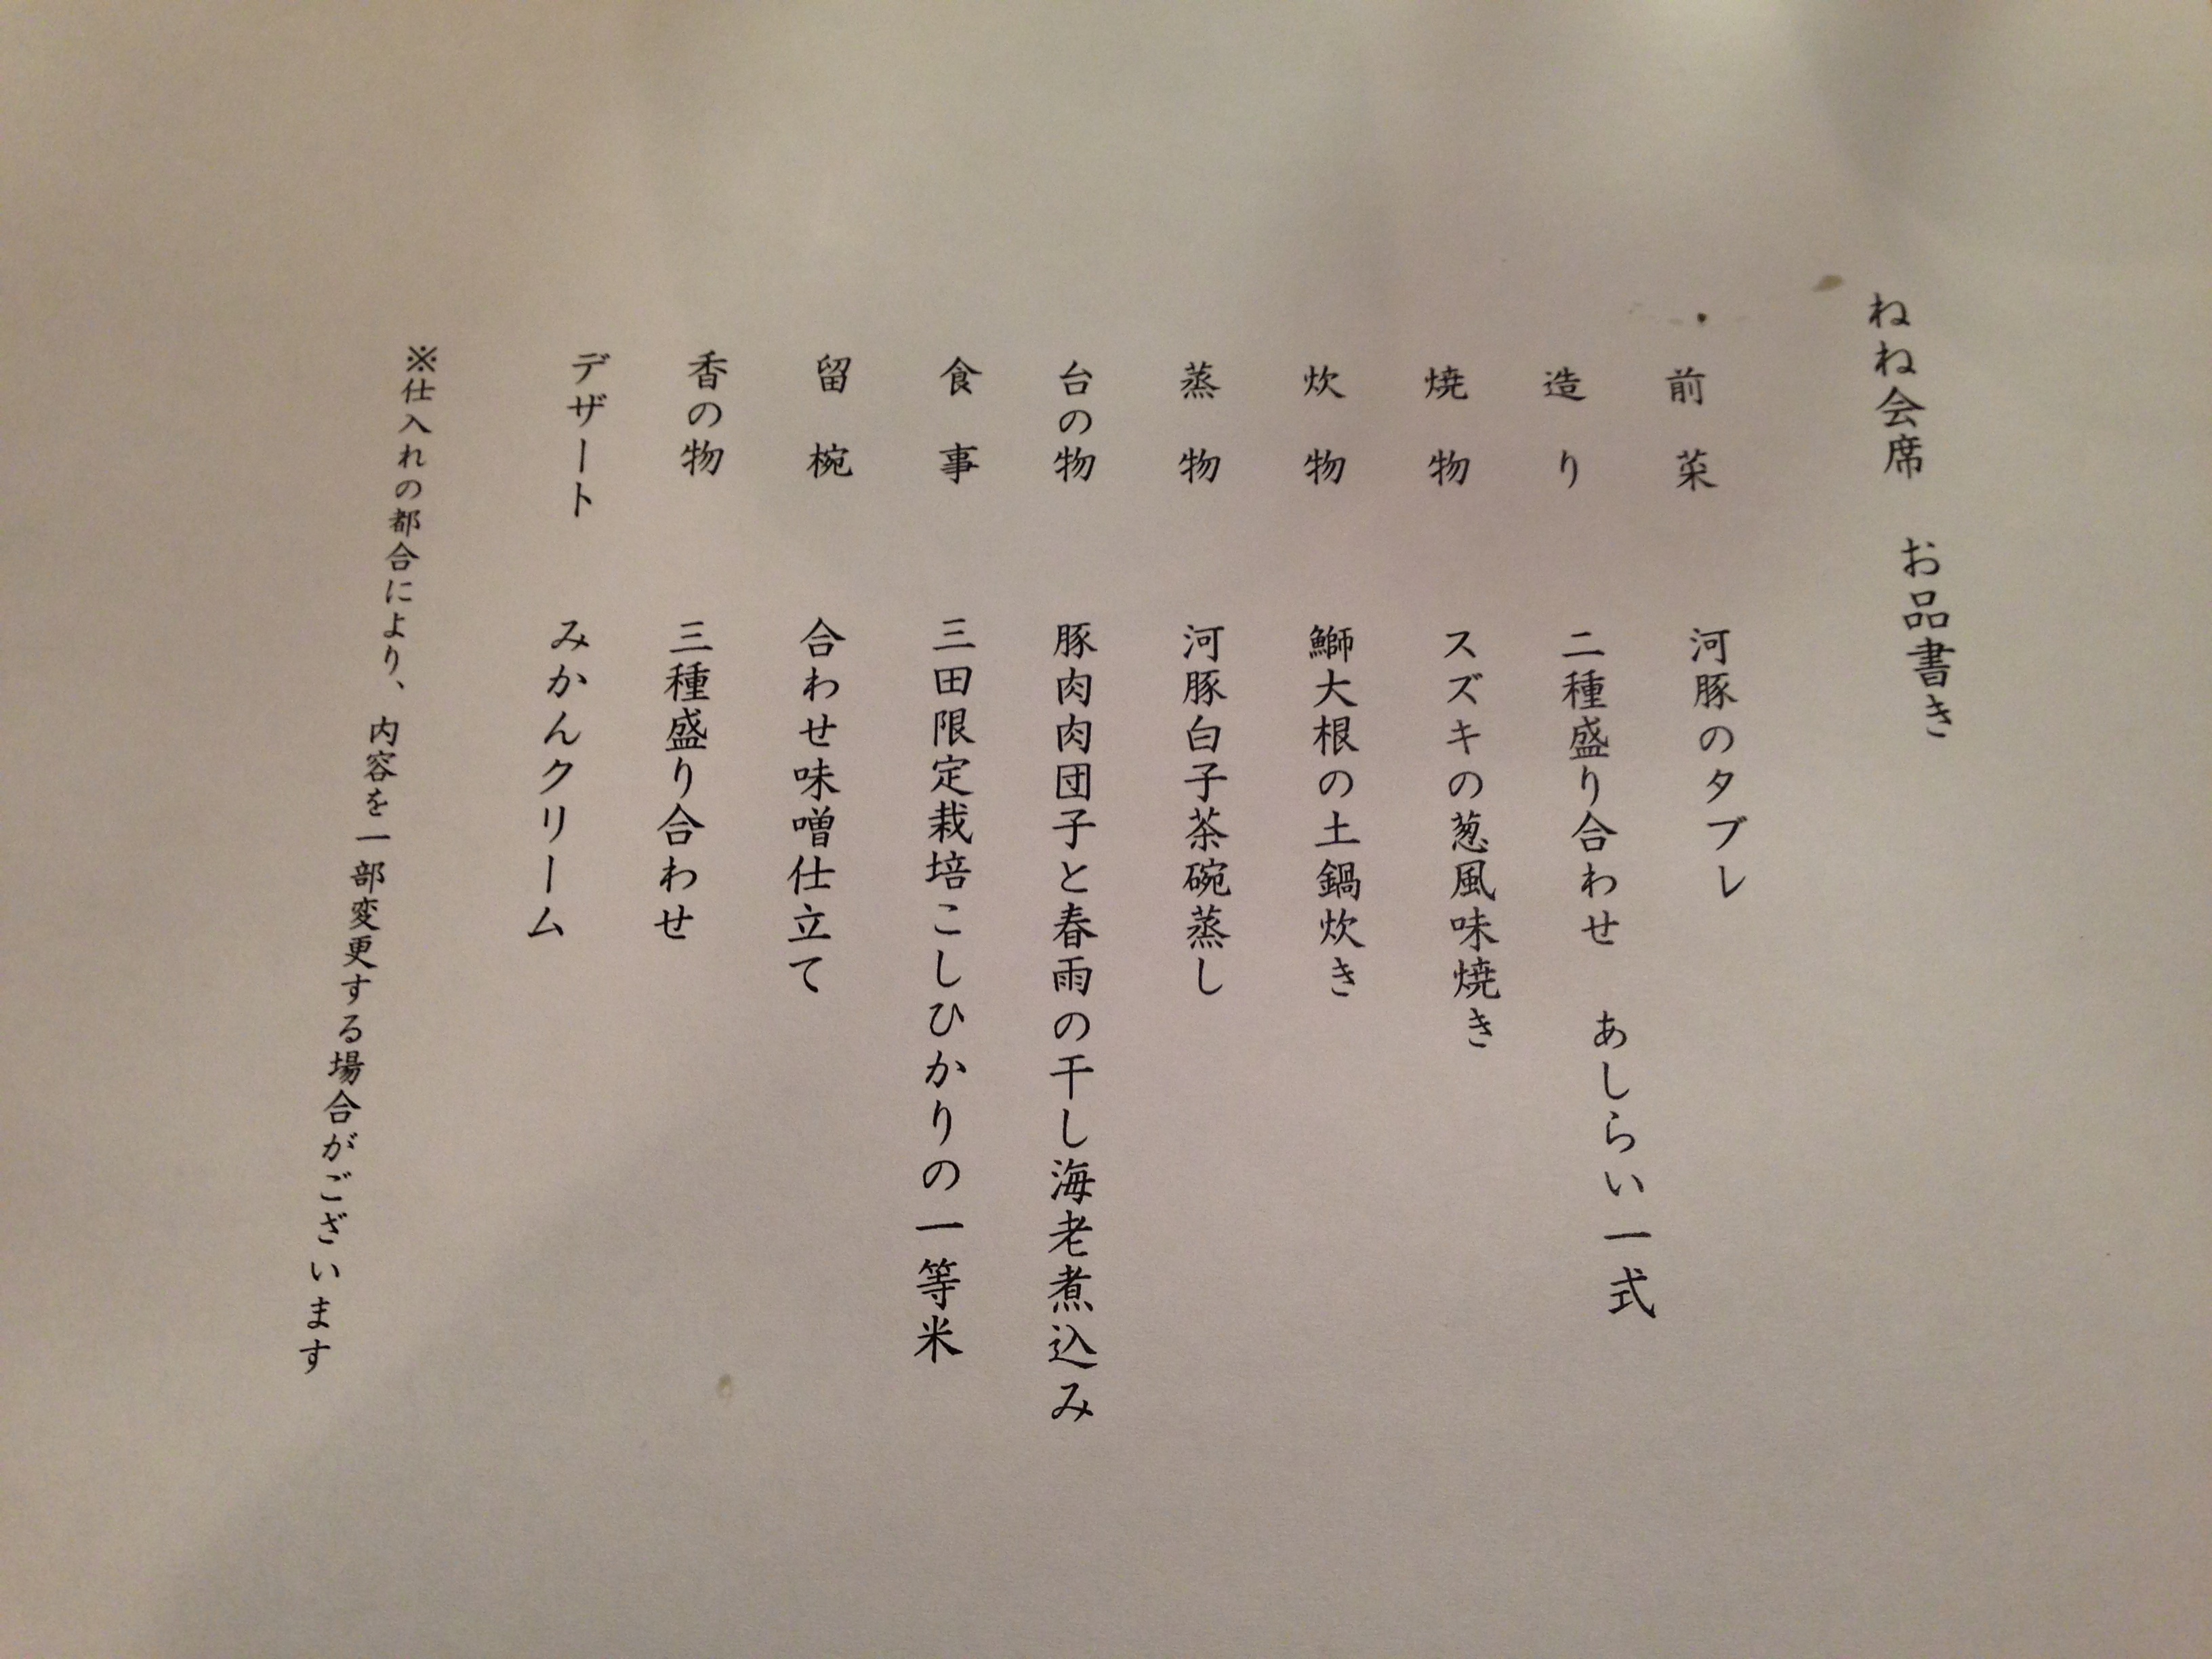 ねね会席　お品書き
前菜　河豚のタブレ
造り　二種盛り合わせ　あしらい一式
焼物　スズキの葱風味焼き
炊物　鰤大根の土鍋炊き
蒸物　河豚白子茶碗蒸し
台の物　豚肉肉団子と春雨の干し海老煮込み
食事　三田限定栽培こしひかりの一等米
留椀　合わせ味噌仕立て
香の物　三種盛り合わせ
デザート　みかんクリーム
※仕入れの都合により、内容を一部変更する場合がございます